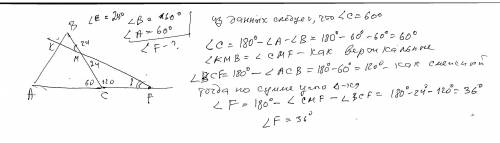 B
∠E = 24° ∠B = 60°
∠A = 60°
∠F - ?
K
24
M
24
60 120
A
C
F
из данных следует, что ∠C = 60°
∠C = 180° - ∠A - ∠B = 180° - 60° - 60° = 60°
∠KMB = ∠CMF - как вертикальные
∠BCF = 180° - ∠ACB = 180° - 60° = 120° - как смежной
тогда по сумме углов Δ-ка
∠F = 180° - ∠CMF - ∠BCF = 180° - 24° - 120° = 36°
∠F = 36°